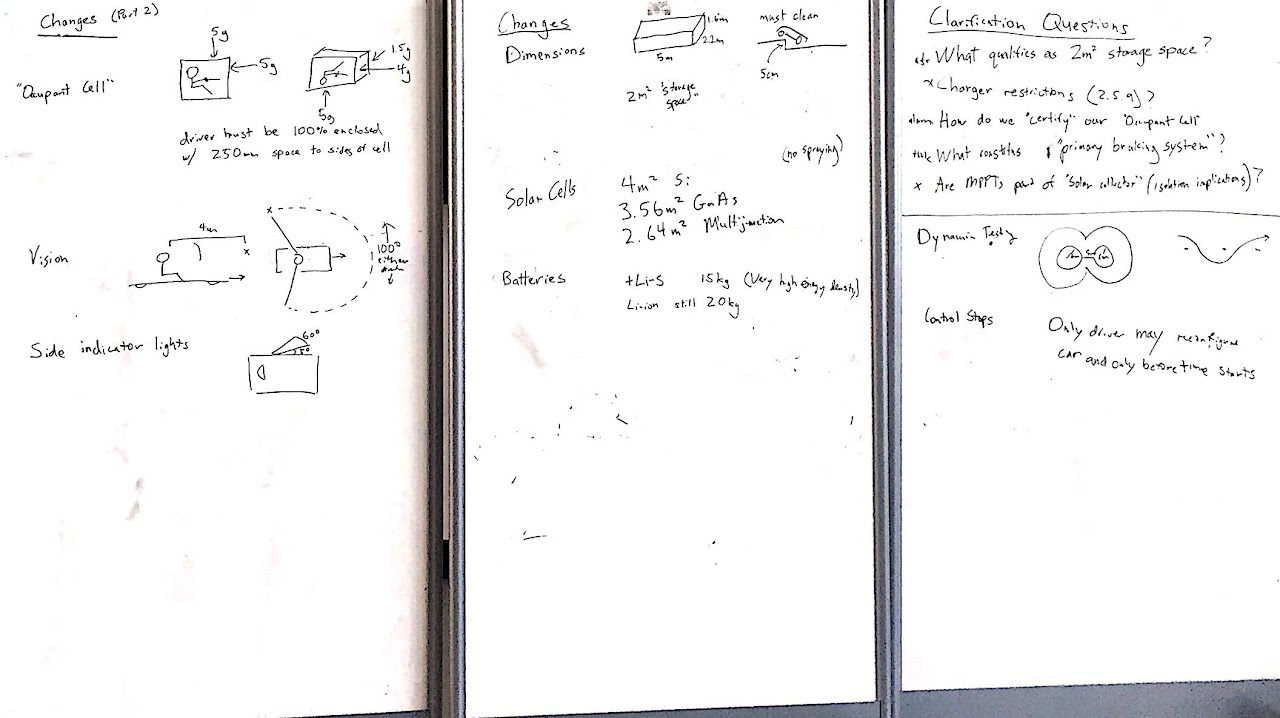 Changes (Part 2)
"Occupant Cell"
5g
5g
1.5g
4g
5g
driver must be 100% enclosed
w/ 250mm space to sides of cell
Vision
4m
x
x
x
100°
either
Side indicator lights
60°
Changes
Dimensions
1.6m
2.2m
5m
must clean
5cm
2m² "storage
space"
(no spraying)
Solar Cells
4m² Si
3.56m² GaAs
2.64m² Multijunction
Batteries
+Li-S 15kg (Very high energy density)
Li-ion still 20kg
Clarification Questions
What qualifies as 2m² storage space?
x Charger restrictions (2.5.9)?
How do we "certify" our "Occupant Cell"
What "primary braking system"?
x Are MPPTs part of "Solar collector" (isolation implications)?
Dynamic Testing
Control Stops
Only driver may reconfigure
car and only before time starts